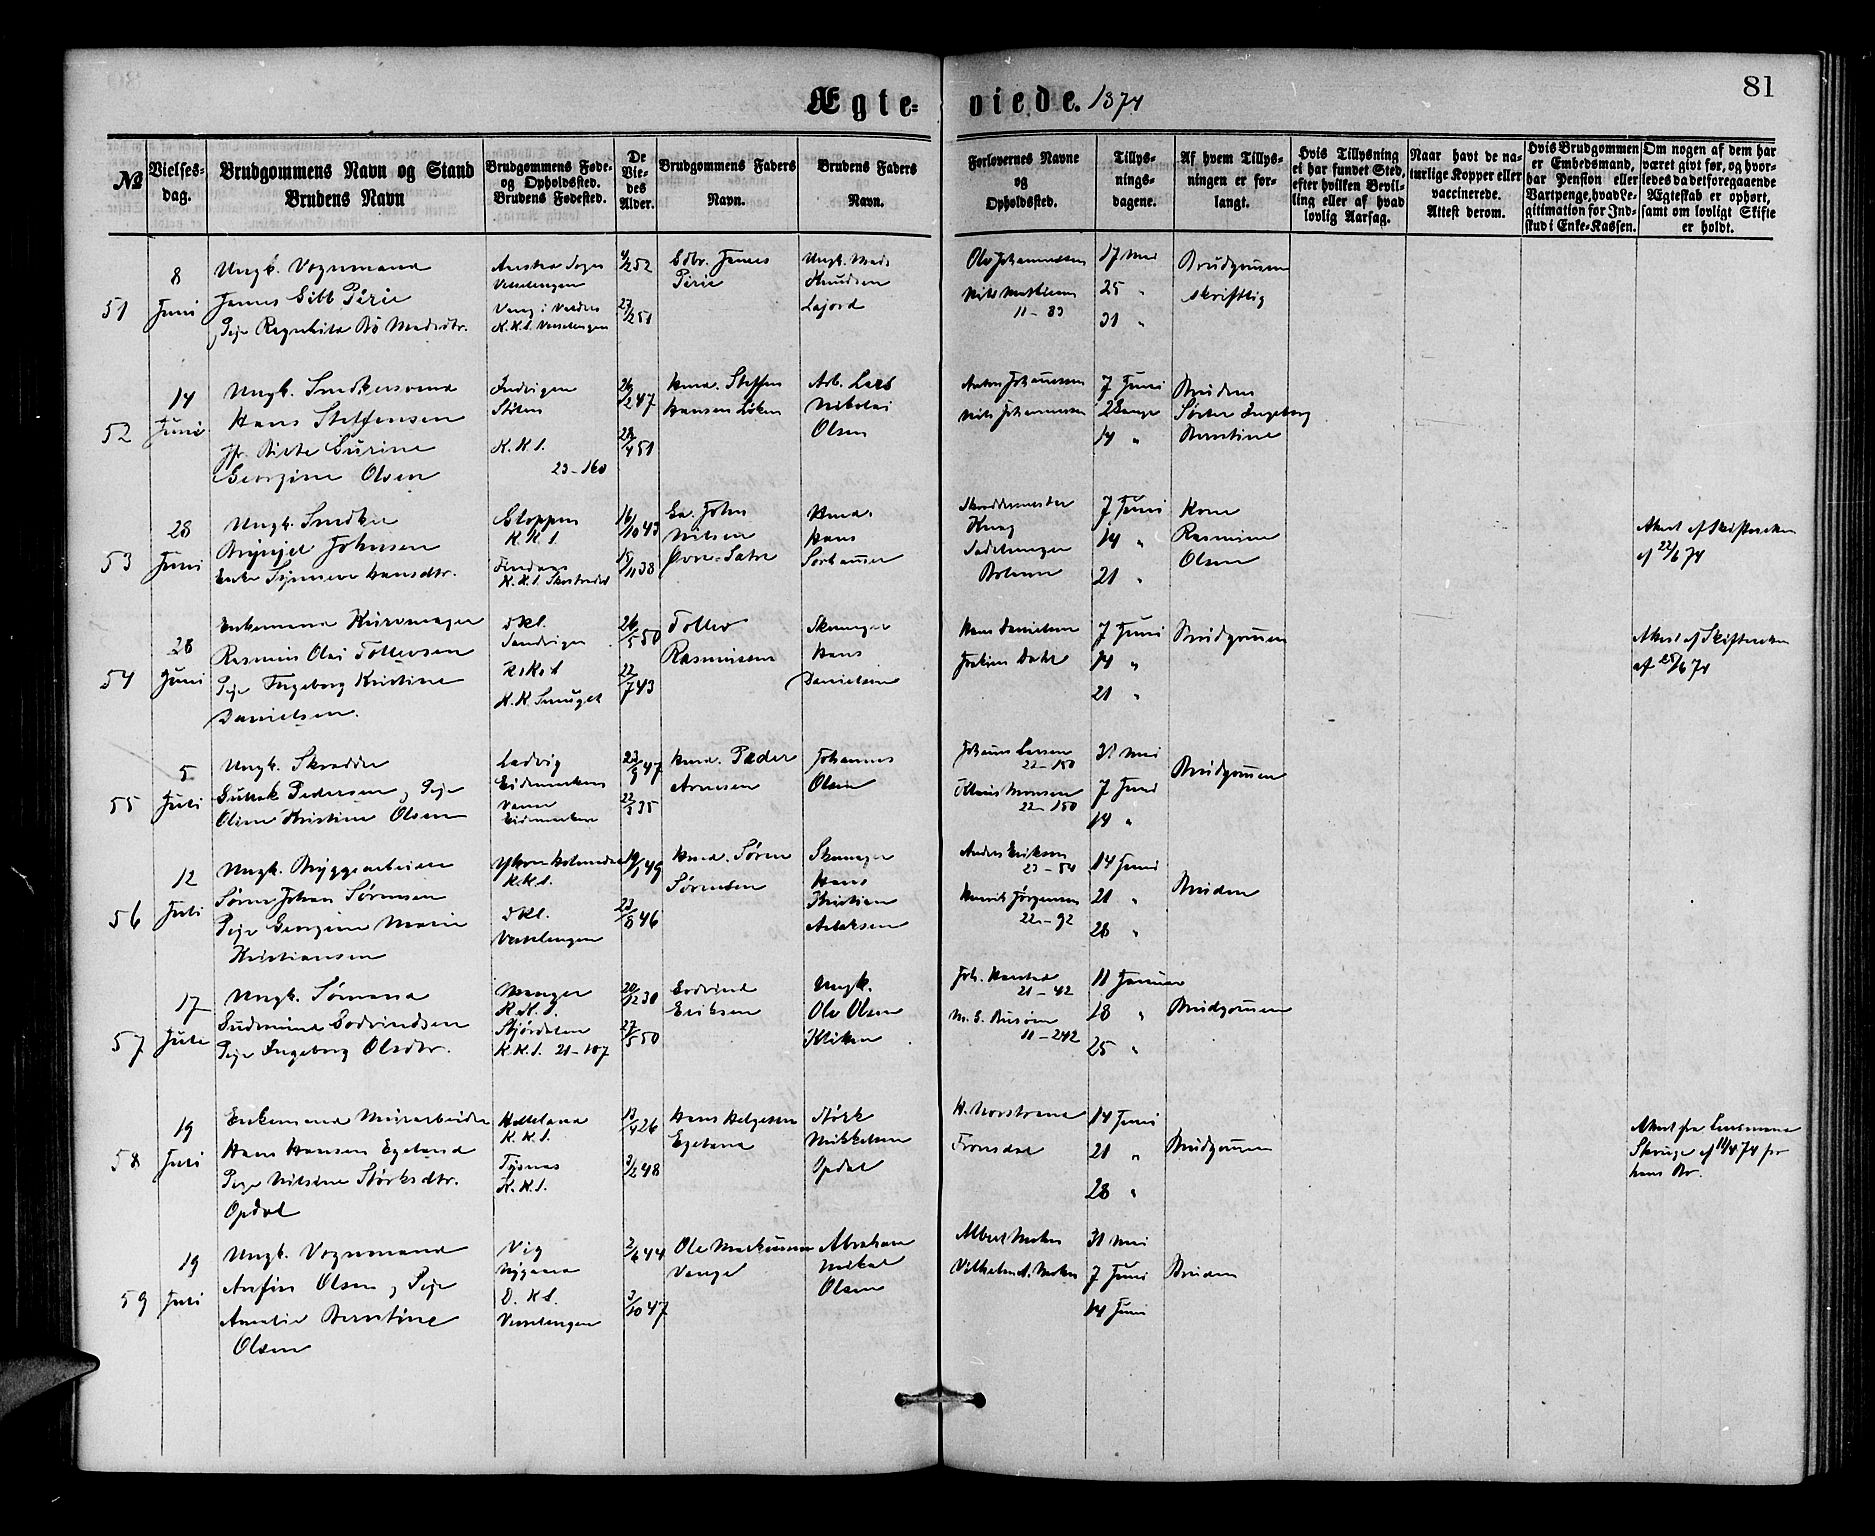 81
Ægte- viede. 1874
№
Vielses-
dag.
Brudgommens Navn og Stand
Brudens Navn
Brudgommens Føde-
og Opholdssted.
Brudens Fødested.
De
Vie-
des
Alder.
Brudgommens Faders
Navn.
Brudens Faders
Navn.
Forlovernes Navne
og
Opholdssted.
Tillys-
nings-
dagene.
Af hvem Tillys-
ningen er for-
langt.
Hvis Tillysning
ei har fundet Sted,
efter hvilken Bevil-
ling eller af hvad
lovlig Aarsag.
Naar havt de na-
turlige Kopper eller
vaccinerede.
Attest derom.
Hvis Brudgommen
er Embedsmand,
har Pension eller
Vartpenge, hvad Le-
gitimation for Ind-
skud i Enke-Kassen.
Om nogen af dem har
været givt før, og hvor-
ledes da det foregaaende
Ægteskab er ophørt,
samt om lovligt Skifte
er holdt.
51
8
Juni
Ungk. Vognmand
James Gibb Pirie
Pige Ragnhild Bø Madsdtr.
Vang i Valders
4/2 52
27/2 51
Gdbr. James
Pirie
Ungk. Mads
Knudsen
Lajord
Ole Johannesen
Nils Mathisen
11-83
17 Mai
25 "
31 "
Brudgommen
skriftlig
52
14
Juni
Ungk. Snedkersvend
Hans Steffensen
Georgine Olsen
K.K.S.
23-160
26/2 47
28/4 51
Hmd. Steffen
Hansen Løken
Arb. Lars
Nikolai
Olsen
Anton Johannesen
Nils Johannesen
7 Juni
2 Gange
14 "
Brudens
Søster Ingeborg
Berntine
53
28
Juni
Ungk. Snedker
Brynjel Johnsen
Enke Synneve Hansdtr.
Gloppen
K.K.S.
Findaas
16/10 43
15/11 38
John
Nilsen
Øvre-Sætre
Hmd.
Hans
Sørhausen
Skræddermester
Krag
Sadelmager
7 Juni
14 "
21 "
Kone
Rasmine
Olsen
Attest af Skifteretten
af 22/6 74
54
28
Juni
Enkemand Kurvmager
Rasmus Olai Tollevsen
Pige Ingeborg Kristine
Danielsen.
Dkl.
Sandvigen
K.K. Smuget
26/5 50
22/7 43
Tollev
Rasmussen
Skomager
Hans
Danielsen
Hans Danielsen
Joakim Dahl
7 Juni
14 "
21 "
Brudgommen
Attest af Skifteretten
af 25/6 74
55
5
Juli
Ungk. Skrædder
Gullak Pedersen, Pige
Oline Kristine Olsen
Ladvig
23/9 47
22/3 35
Hmd. Peder
Arnesen
Johannes
Olsen
Johannes Larsen
22-150
Klaus Monsen
22-150
31 Mai
7 Juni
14 "
Brudgommen
56
12
Juli
Ungk. Bryggearbeider
Søren Johan Sørensen
Pige Georgine Marie
Kristiansen
K.K.S.
Dkl.
Vesselengen
19/1 49
23/8 46
Hmd. Søren
Sørensen
Skomager
Hans
Kristian
Aslaksen
Anders Eriksen
23-54
Henrik Jørgensen
22-92
14 Juni
21 "
28 "
Bruden
57
17
Juli
Ungk. Sømand
Gudmund Godvindsen
Pige Ingeborg Olsdtr.
Manger
K.K.S.
Stjørdalen
K.K.S. 21-107
20/12 30
27/5 50
Godvind
Eriksen
Ungk.
Ole Olsen
Joh. Harstad
21-42
11-242
11 Januar
18 "
25 "
Brudgommen
58
19
Juli
Enkemand Murarbeider
Hans Hansen Egeland
Pige Nilsine Størksdtr.
Opdal
Helleland
K.K.S.
Tysnæs
K.K.S.
13/4 26
3/2 48
Hans Helgesen
Egeland
Størk
Mikkelsen
Opdal
H. Norstrand
Fronsdal
14 Juni
21 "
28 "
Brudgommen
Attest fra Lensmand
Skauge af 11/4 74 for
hans Br.
59
19
Juli
Ungk. Vognmand
Anfin Olsen, Pige
Amalie Berntine
Olsen
Vig
Nygaard
D.K.S.
Vesselengen
2/6 44
3/10 47
Ole Markussen
Vange
Abraham
Mikal
Olsen
Albert Moken
Vilhelm A. Moken
31 Mai
7 Juni
14 Juni
Bruden